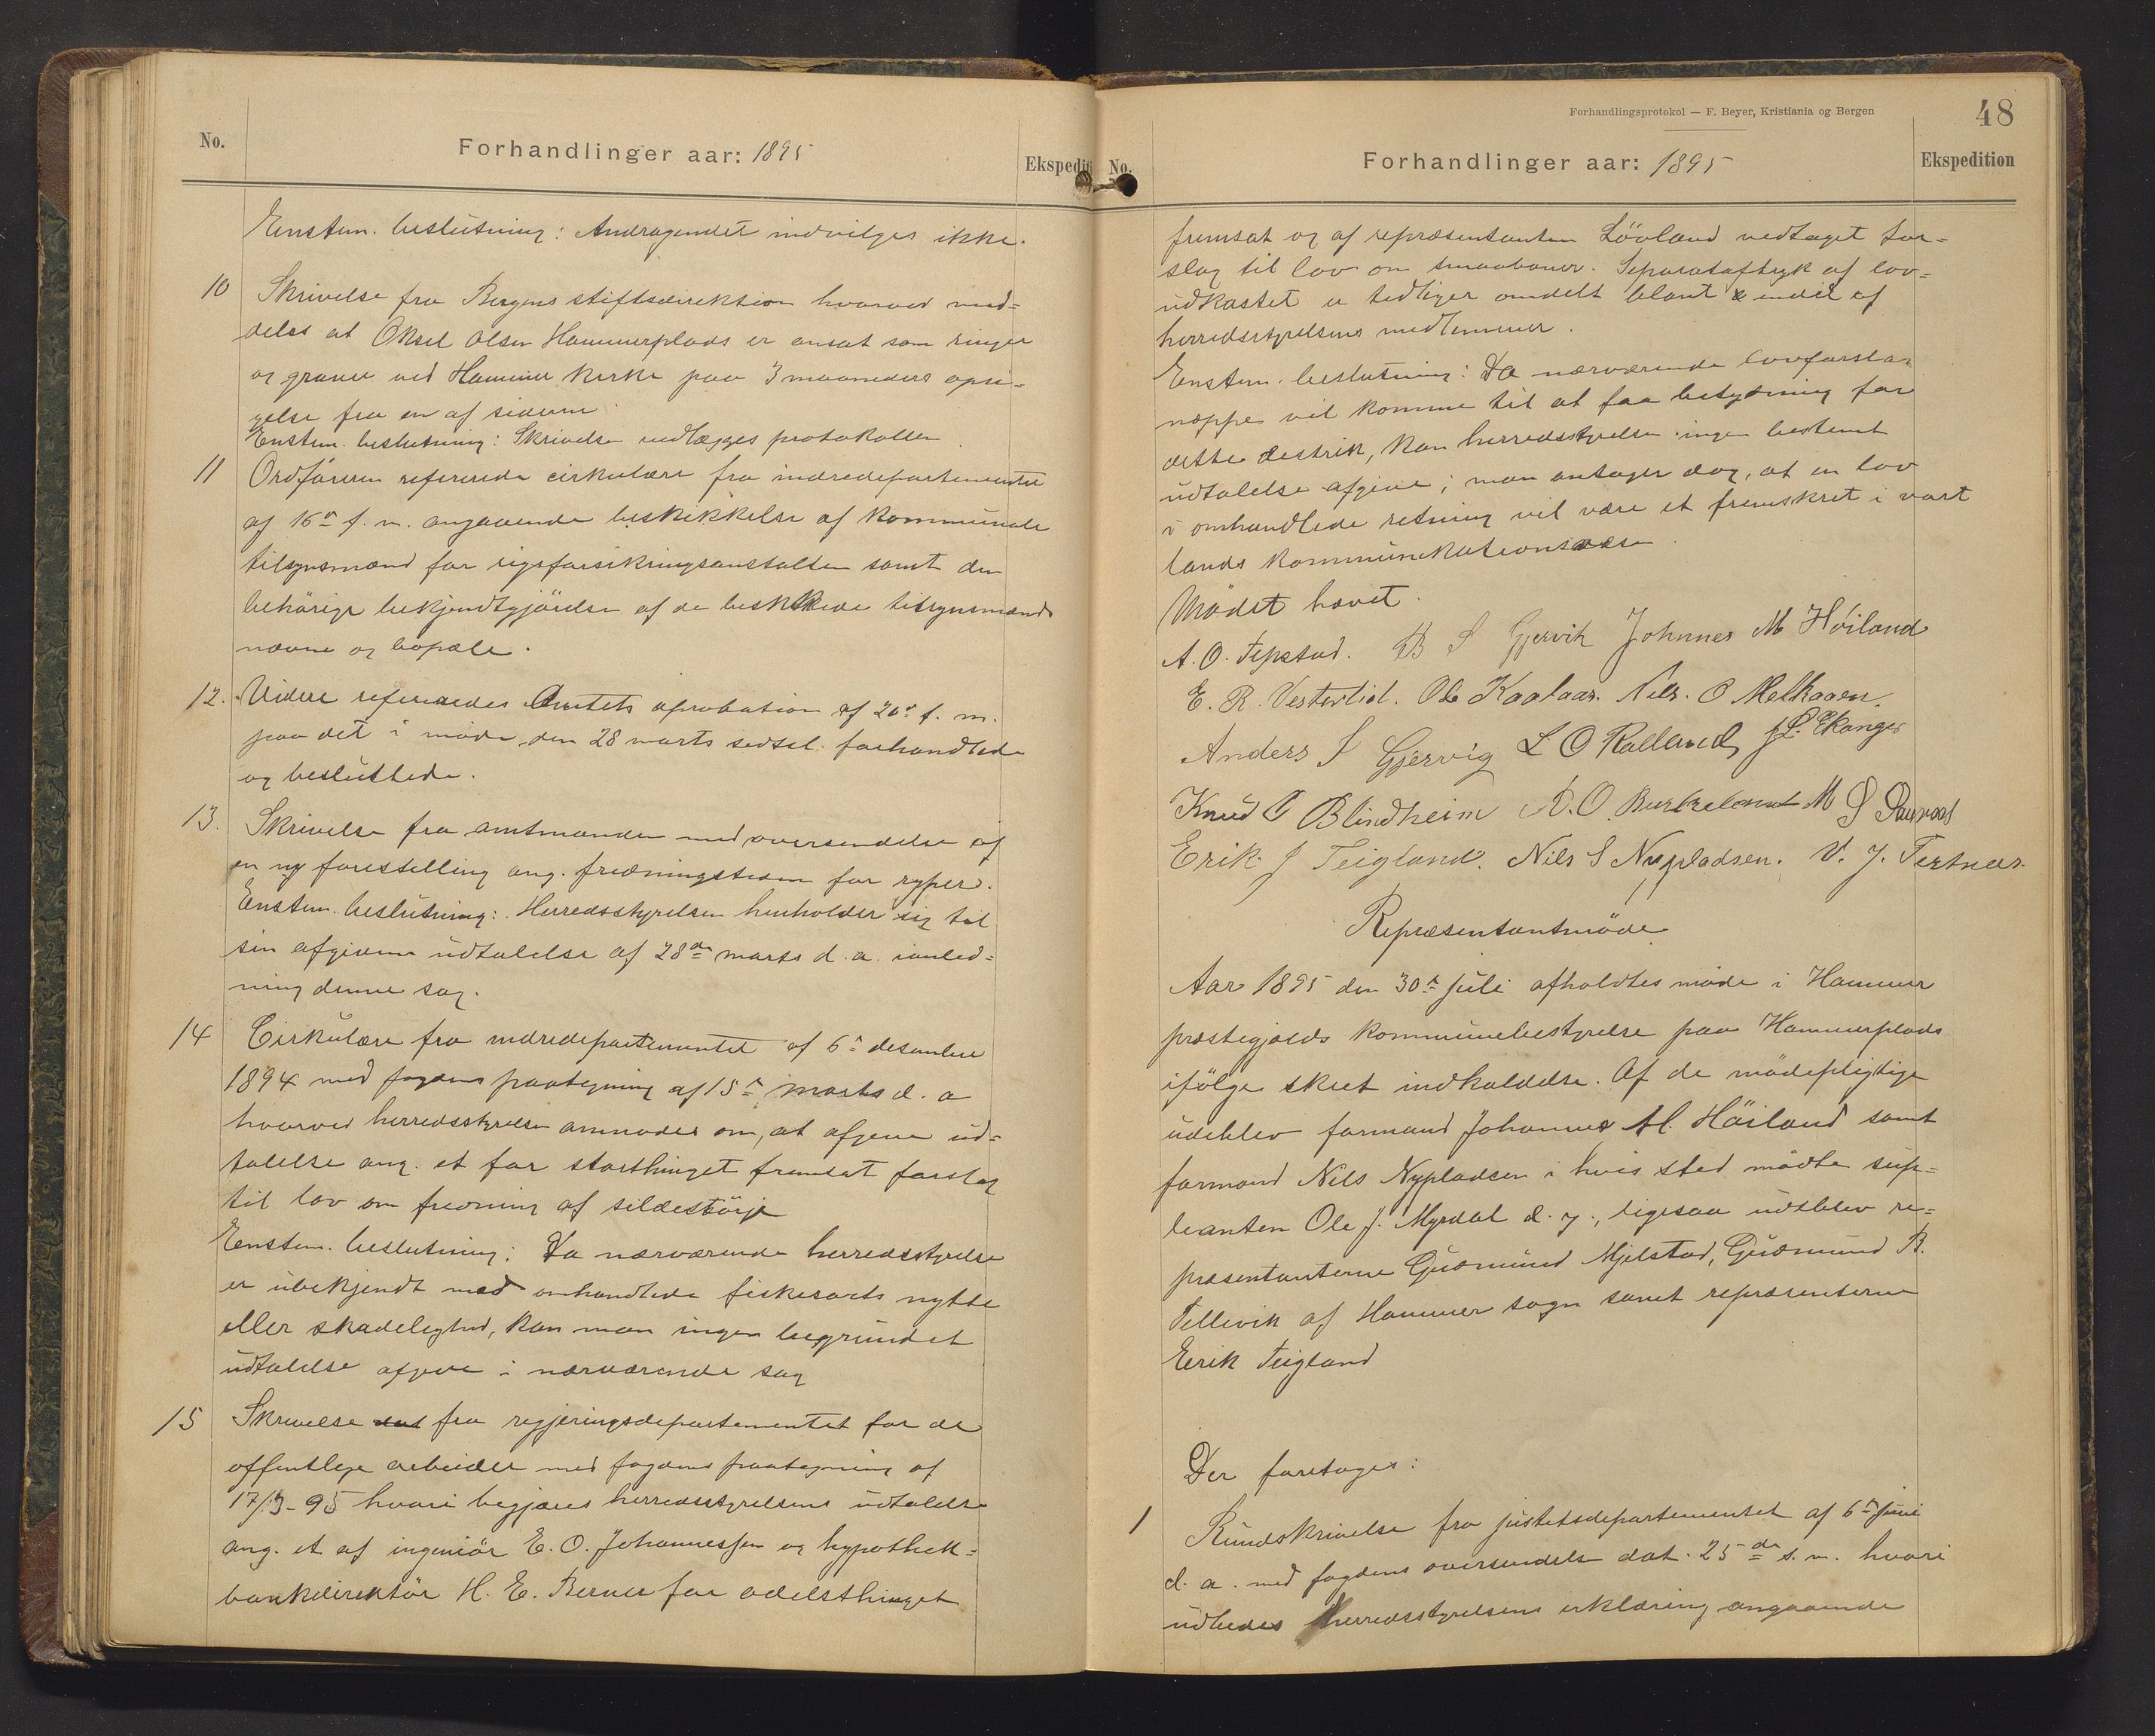 No.
Forhandlinger aar: 1895
Ekspedit
Enstem. beslutning: Andragendet indvilges ikke.
10 Skrivelse fra Bergens stiftsdirektion hvorved med-
deles at Oksel Olsen Hammerplads er ansat som ringer
og graver ved Hammer kirke paa 3 maaneders opsi-
gelse fra en af siderne
Enstem. beslutning: Skrivelsen vedlægges protokollen.
11 Ordføreren refererede cirkulære fra indredepartementet
af 16de f. m. angaaende beskikkelse af kommunale
tilsynsmænd for rigsforsikringsanstalten samt den
behörige bekjendtgjörelse af de beskikkede tilsynsmænds
navne og bopæle.
12. Videre refereredes Amtets aprobation af 20de f. m.
paa det i møde den 28 marts sidstl. forhandlede
og besluttede.
13. Skrivelse fra amtmanden med oversendelse af
en ny forestilling ang. fredningstiden for ryper.
Enstem. beslutning: Herredsstyrelsen henholder sig til
sin afgivne udtalelse af 28de marts d. a. ianled-
ning denne sag.
14 Cirkulære fra indredepartementet af 6te desember
1894 med fogdens paategning af 15de marts d. a
hvorved herredsstyrelsen anmodes om, at afgive ud-
talelse ang. et for storthinget fremsat forslag
til lov om fredning af sildestörje
Enstem. beslutning: Da nærværende herredsstyrelse
er ubekjendt med omhandlede fiskesorts nytte
eller skadelighed, kan man ingen begrundet
udtalelse afgive i nærværende sag
15 Skrivelse fra regjeringsdepartementet for de
offentlige arbeider med fogdens paategning af
17/3-95 hvori begjæres herredsstyrelsens udtalelse
ang. et af ingeniör E. O. Johannessen og hypothek-
bankdirektör H. E. Berner for odelsthinget
Forhandlingsprotokol — F. Beyer, Kristiania og Bergen
48
No.
Forhandlinger aar: 1895
Ekspedition
fremsat og af repræsentanten Lövland vedtaget for-
slag til lov om smaabaner. Separataftryk af lov-
udkastet er tidliger omdelt blant endel af
herredsstyrelsens medlemmer.
Enstem. beslutning: Da nærværende lovforslag
neppe vil komme til at faa betydning for
dette destrikt, kan herredsstyrelsen ingen bestemt
udtalelse afgive; man antager dog, at en lov
i omhandlede retning vil være et fremskret i vort
lands kommunikationsvæsen.
Mödet hævet.
A. O. Tepstad. B S Gjervik Johnnes M Höiland
E. R. Vestervlid. Ole Kaalaas. Nils. O Melkaaen.
Anders S Gjervig L O Rolland J. L. Ekanger
Knud O Blindheim A. O. Burkeland M S
Erik. J Teigland. Nils S Nypladsen. V. J. Tertnæs.
Repræsentantmöde
Aar 1895 den 30te juli afholdtes möde i Hammer
præstegjælds kommunebestyrelse paa Hammerplads
ifölge skret indkaldelse. Af de mödepligtige
udeblev formand Johannes M. Höiland samt
formand Nils Nypladsen i hvis sted mödte sup-
leanten Ole J. Myrdal d. y., ligesaa udeblev re-
præsentanterne Gudmund Mjelstad, Gudmund B.
Tellevik af Hammer sogn samt repræsenterne
Eirik Teigland
Der foretoges:
1 Rundskrivelse fra justitsdepartementet af 6te juni
d. a. med fogdens oversendelse dat. 25de s. m. hvori
udbedes herredsstyrelsens erklæring angaaende